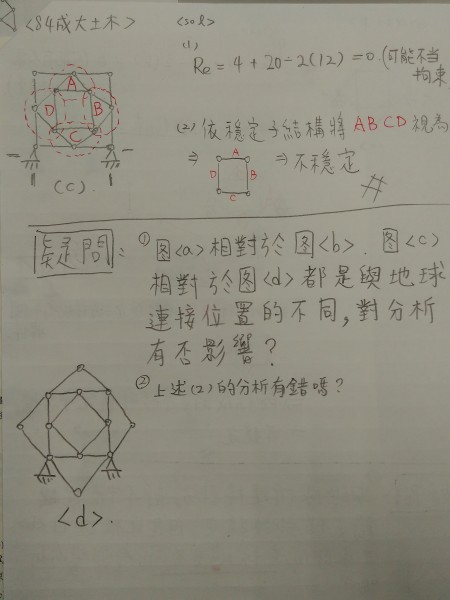 <84成大土木>
<sol>
(1)
Re = 4 + 20 - 2(12) = 0. (可能不當
拘束
(2) 依穩定子結構將 ABCD 視為
A
D B
C
⇒
A
D B
C
⇒ 不穩定
(c).
疑問:
① 图<a>相對於图<b>. 图<c>
相對於图<d>都是與地球
連接位置的不同,對分析
有否影響?
② 上述(2)的分析有錯嗎?
<d>.